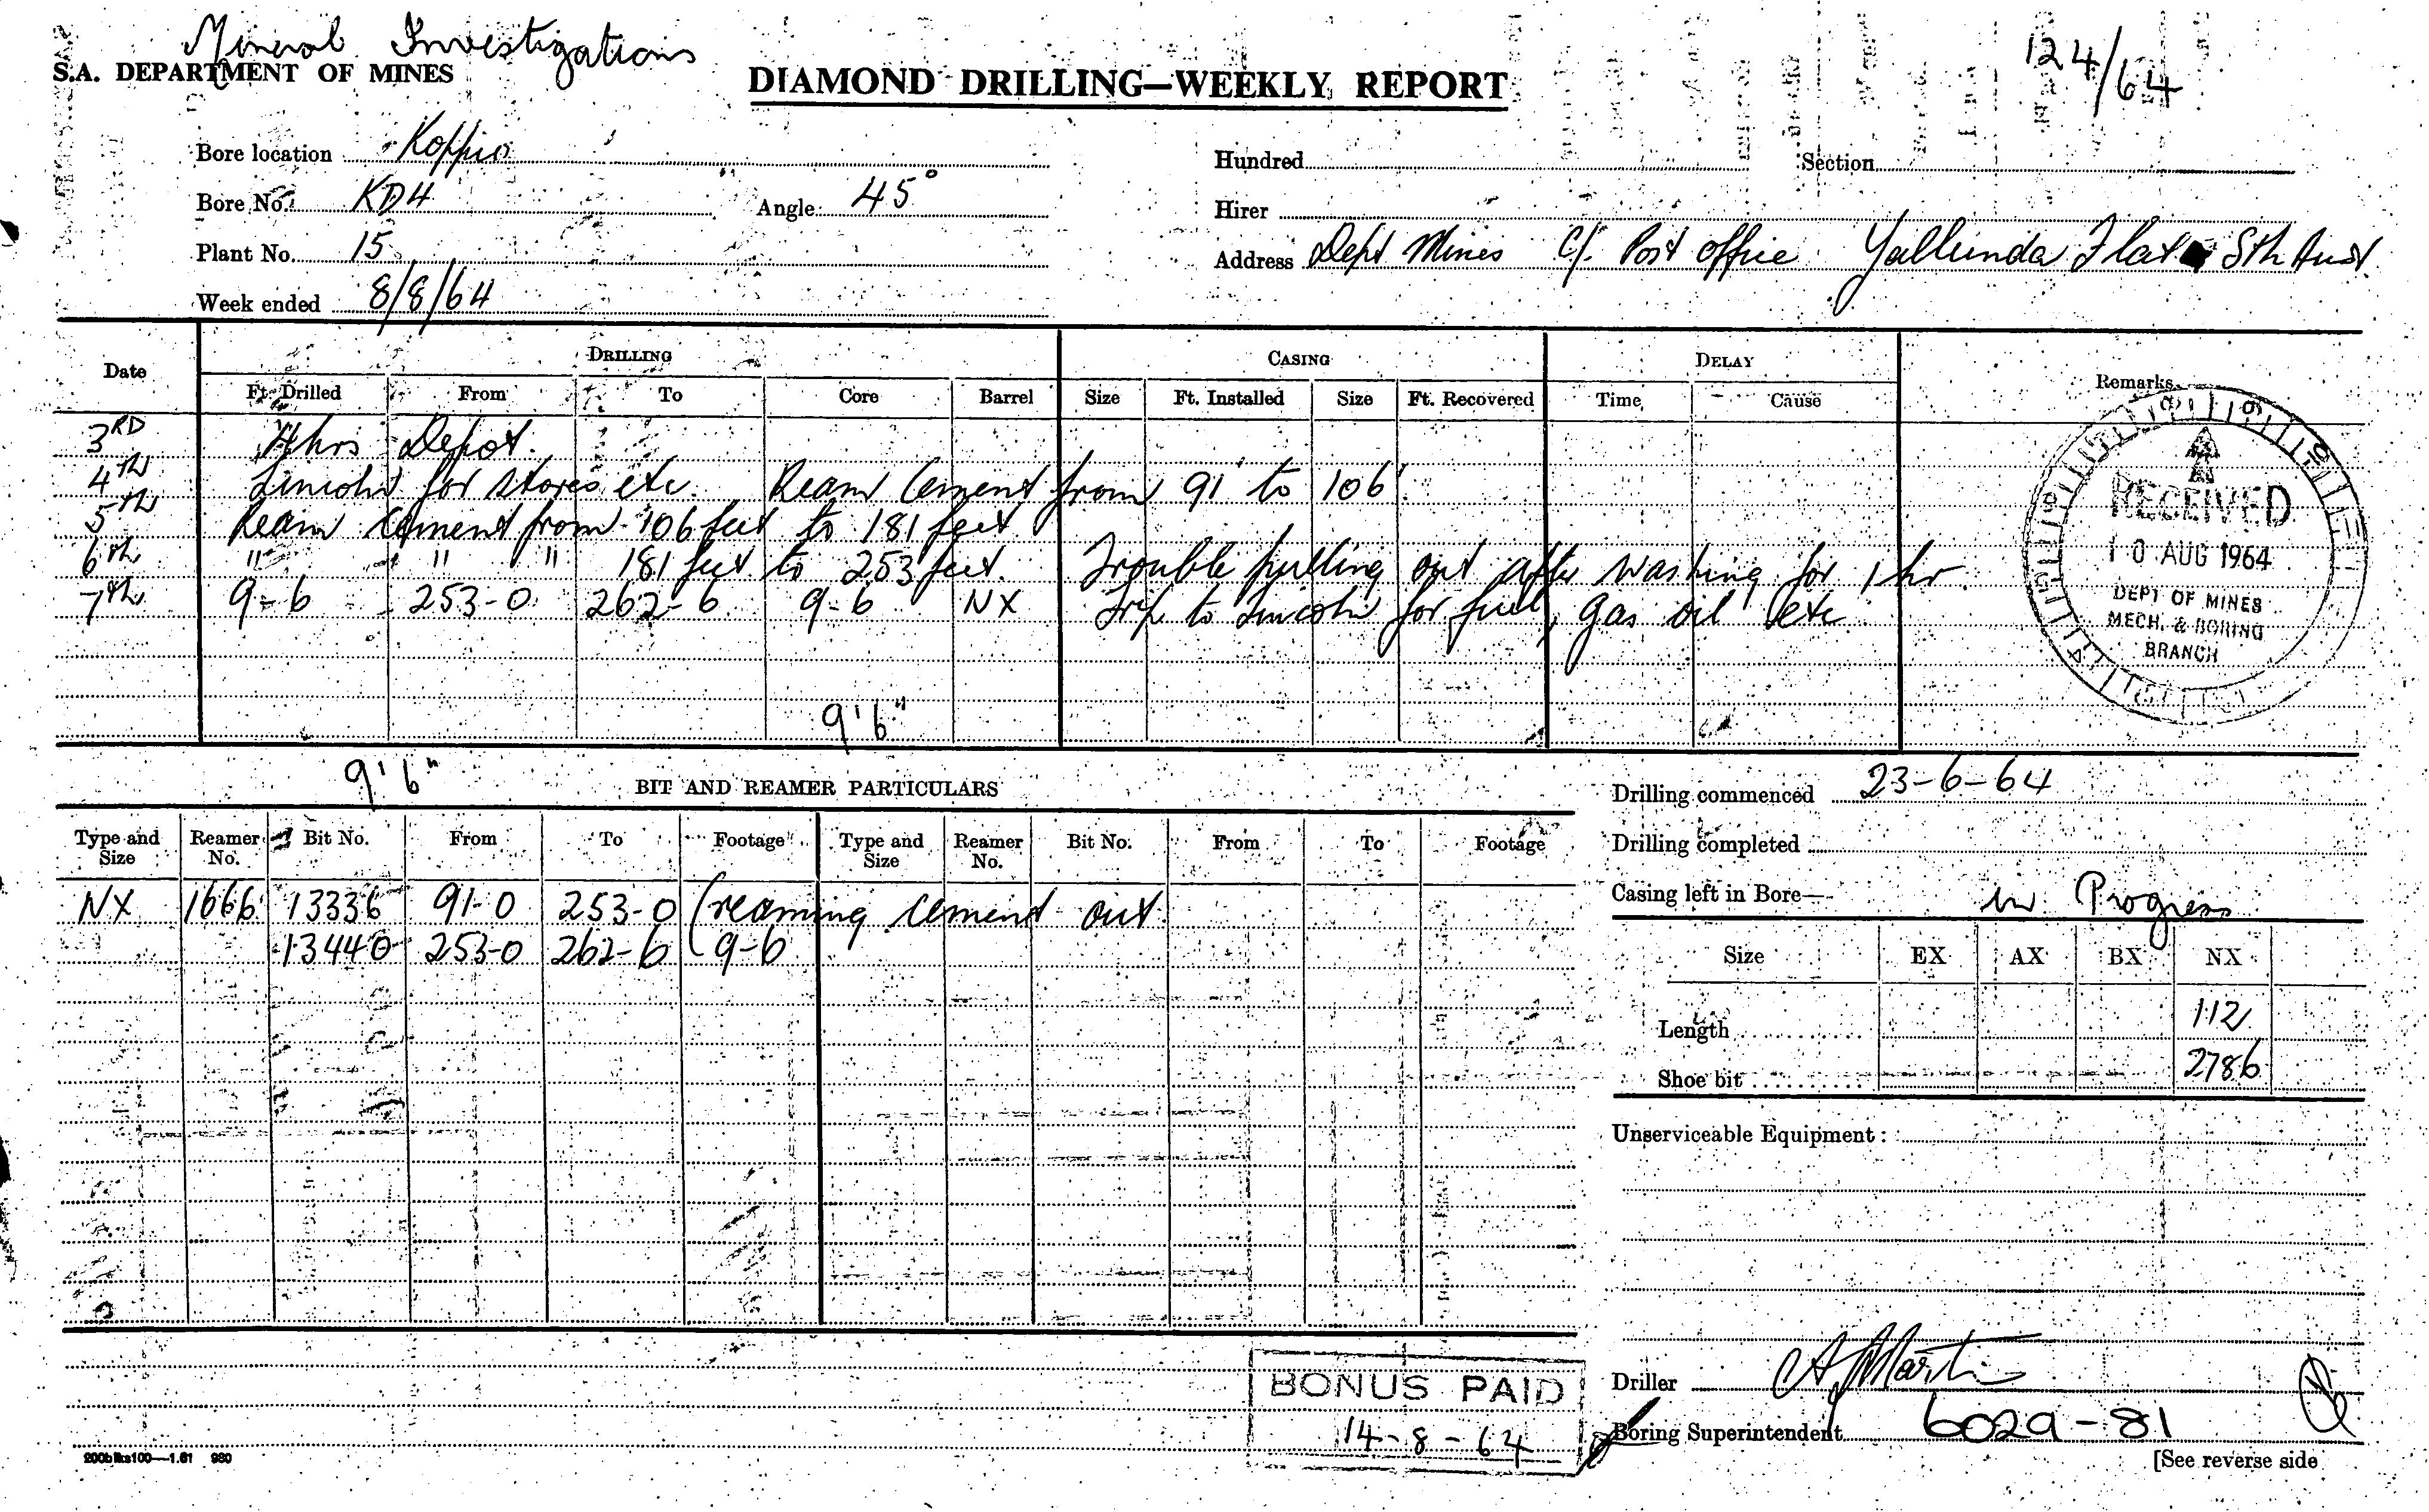 Mineral Investigations
S.A. DEPARTMENT OF MINES
DIAMOND DRILLING—WEEKLY REPORT
124/64
Bore location Koppio
Hundred Section
Bore No. KD4 Angle 45°
Hirer
Plant No. 15
Address Dept Mines C/. Post Office Yallunda Flat Sth Aust.
Week ended 8/8/64
Date DRILLING CASING DELAY Remarks
Ft. Drilled From To Core Barrel Size Ft. Installed Size Ft. Recovered Time Cause
3RD 4hrs Depot.
4th Lincoln for stores etc. Ream Cement from 91' to 106'
5th Ream cement from 106 feet to 181 feet
6th " " " 181 feet to 253 feet. Trouble pulling out after washing for 1 hr
7th 9-6 253-0 262-6 9-6 NX Trip to Lincoln for fuel, gas oil etc
9'6"
RECEIVED
10 AUG 1964
DEPT OF MINES
MECH. & BORING
BRANCH
9'6"
BIT AND REAMER PARTICULARS
Type and Size Reamer No. Bit No. From To Footage Type and Size Reamer No. Bit No. From To Footage
NX 1666 13336 91-0 253-0 (reaming cement out
13440 253-0 262-6 9-6
Drilling commenced 23-6-64
Drilling completed
Casing left in Bore— in Progress
Size EX AX BX NX
Length 112
Shoe bit 2786
Unserviceable Equipment :
BONUS PAID
14-8-64
Driller A J Martin
Boring Superintendent 6029-81
200blks100—1.61 980
[See reverse side